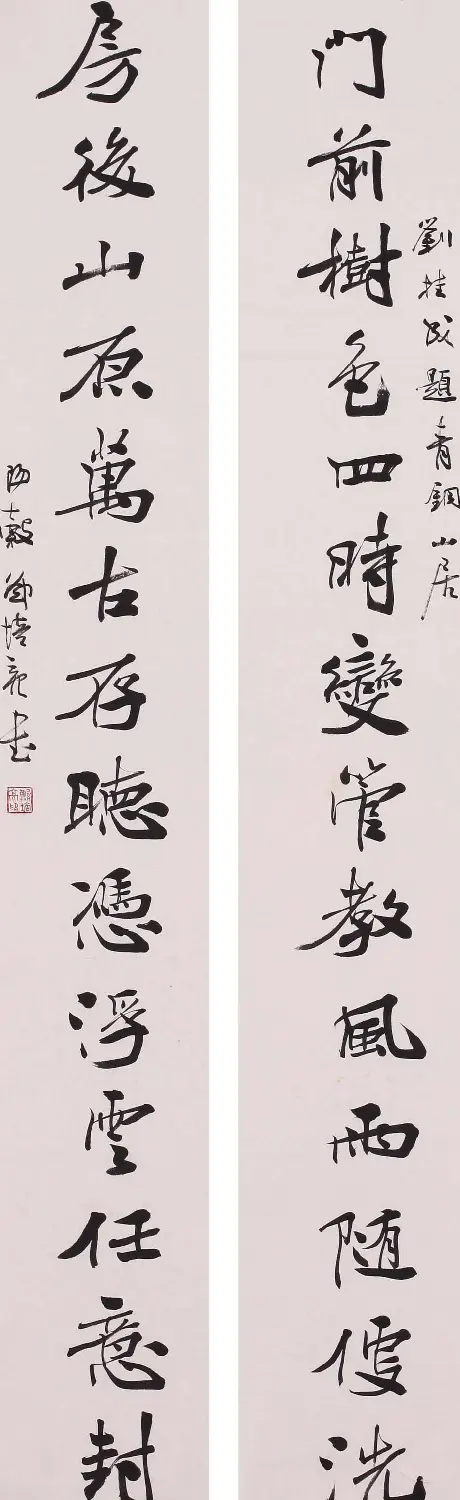 門前樹色四時變管教風雨隨便洗
劉桂成題青銅山居
房後山原萬古存聽憑浮雲任意封
陽穀 培亮書